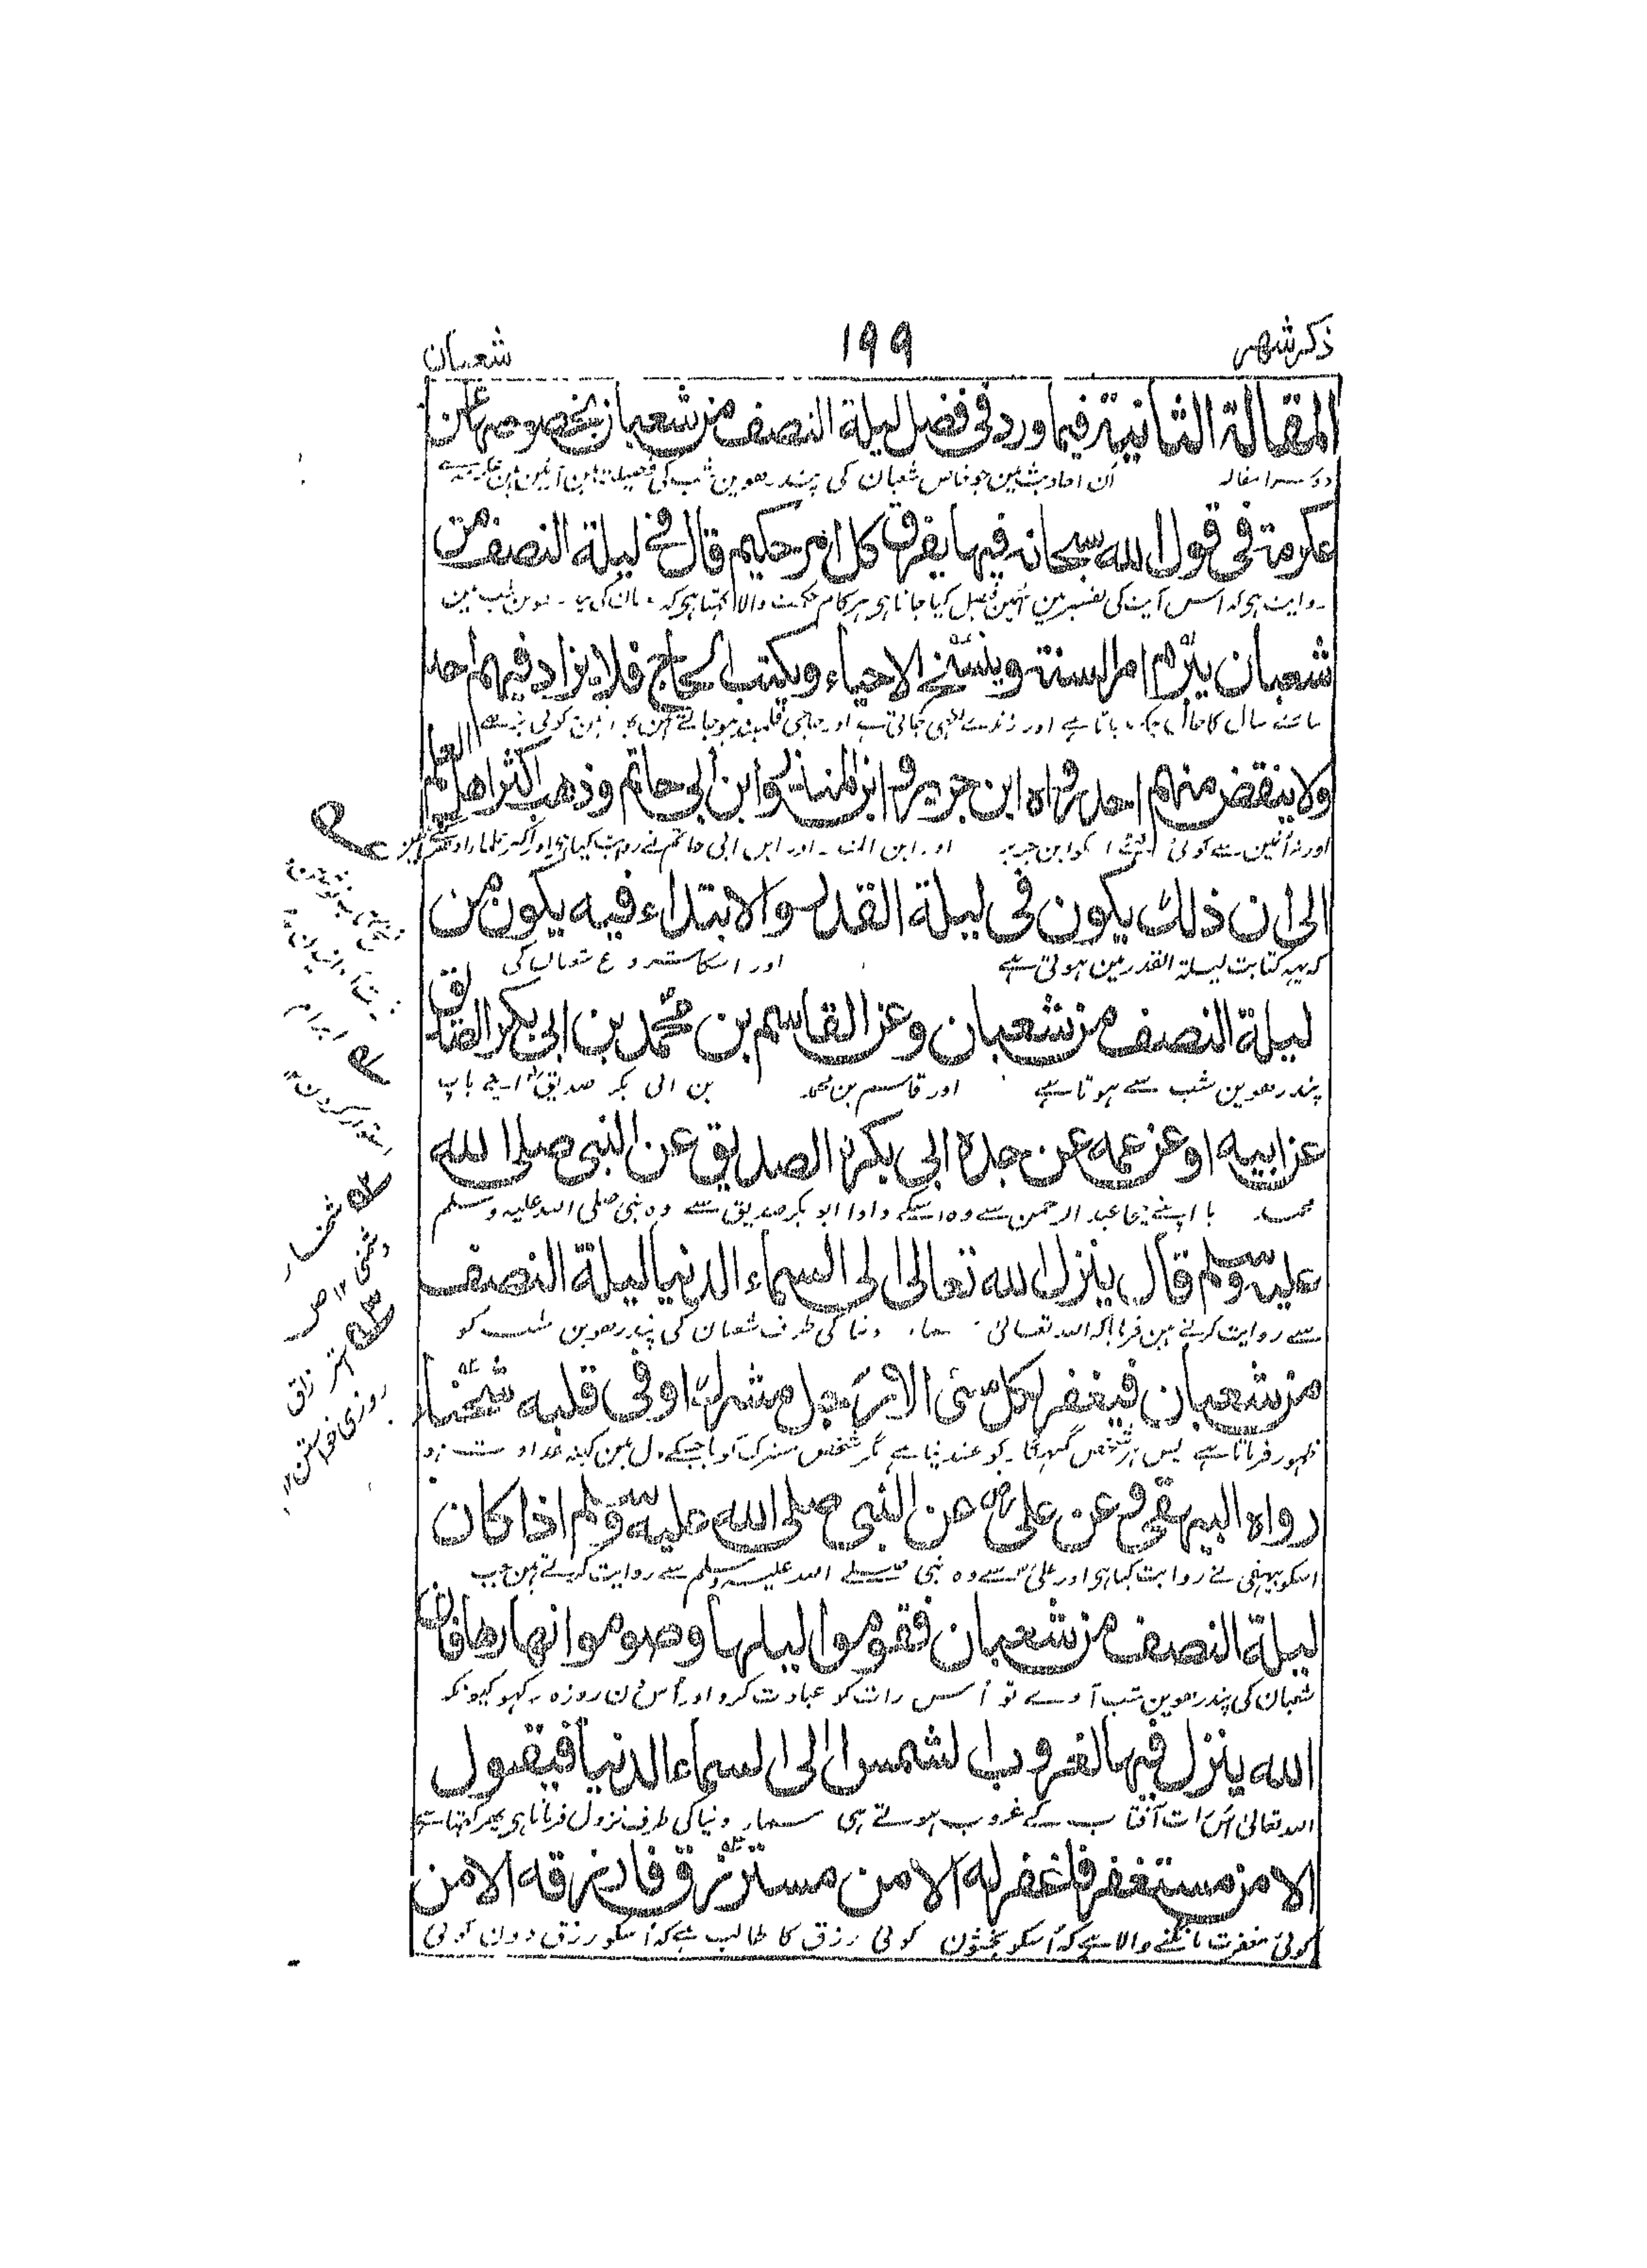 ذکر شهر ۱۹۹ شعبان
المقالة الثانية فیما ورد فی فضل لیلة النصف من شعبان بخصوصها عن
دوسرا مقالہ اُن احادیث مین جو خاص شعبان کی پندرھوین شب کی فضیلت مین آئین
عکرمة فی قول الله سبحانه فیها یفرق کل امر حکیم قال فی لیلة النصف من
روایت ہی کہ اس آیت کی تفسیر مین فیصل کیا جاتا ہی ہر کام حکمت والا کہتا ہی کہ شب مین
شعبان یبرم امر السنة وینسخ الاحیاء ویکتب الحاج فلا یزاد فیهم احد
سال کا حال اور زندے اور حاجی قلمبند ہو جاتے ہین کوئی
ولا ینقص منهم احد رواه ابن جریر وابن المنذر وابن ابی حاتم وذهب اکثر اهل العلم
اور نہ اُنمین سے کوئی ابن جریر اور ابن المنذر اور ابن ابی حاتم نے روایت کیا ہی اور اکثر علما
الی ان ذلك یکون فی لیلة القدر والابتداء فیه یکون من
کہ یہہ کتابت لیلة القدر مین ہوتی ہے اور اسکا شروع شعبان کی
لیلة النصف من شعبان وعن القاسم بن محمد بن ابی بکر الصدیق
پندرھوین شب سے ہوتا ہے اور قاسم بن محمد بن ابی بکر صدیق اپنے باپ
عن ابیه او عن عمه عن جده ابی بکر الصدیق عن النبی صلی الله
محمد یا اپنے چچا عبد الرحمن سے وہ اسکے دادا ابو بکر صدیق سے وہ نبی صلی اللہ علیہ وسلم
علیه وسلم قال ینزل الله تعالی الی السماء الدنیا لیلة النصف
سے روایت کرتے ہین فرمایا کہ اللہ تعالیٰ سماء دنیا کی طرف شعبان کی پندرھوین شب کو
من شعبان فیغفر لکل شئ الا لرجل مشرك او فی قلبه شحناء
ظہور فرماتا ہے پس ہر شخص کو مگر شخص مشرک کو یا جسکے دل مین کینہ عداوت ہو
رواه البیهقی وعن علی عن النبی صلی الله علیه وسلم اذا کان
اسکو بیہقی نے روایت کیا ہی اور علی سے وہ نبی صلے اللہ علیہ وسلم سے روایت کرتے ہین جب
لیلة النصف من شعبان فقوموا لیلها وصوموا نهارها فان
شعبان کی پندرھوین شب آوے تو اُس رات کو عبادت کرو اور اُس دن روزہ رکہو کیونکہ
الله ینزل فیها لغروب الشمس الی السماء الدنیا فیقول
اللہ تعالیٰ اُس رات آفتاب کے غروب ہوتے ہی سماء دنیا کی طرف نزول فرماتا ہی پھر کہتا ہے
الا من مستغفر فاغفر له الا من مسترزق فارزقه الا من
کوئی مغفرت مانگنے والا ہے کہ اُسکو بخشون کوئی رزق کا طالب ہے کہ اُسکو رزق دون کوئی
ابرام
استوار کردن
شحناء
دشمنی ۱۲ ص
استرزاق
روزی خواستن ۱۲